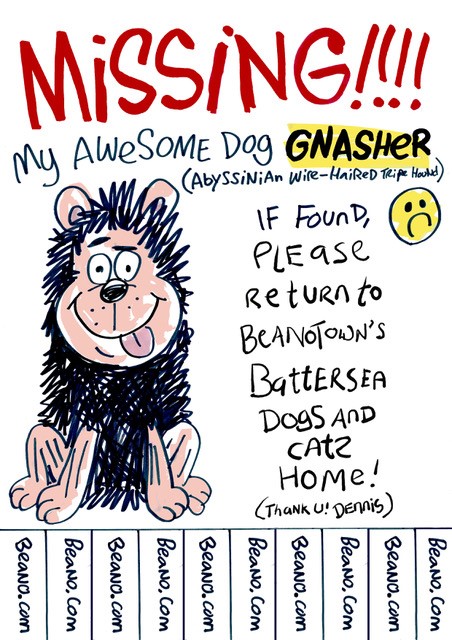 MiSSiNG!!!!
My AWeSOME DOG GNASHeR
(AbySSiNiAn Wire-HaiReD Tripe Hound)
IF FounD,
PLEASe
ReTurn to
BeANOTOWN'S
BATTERSEA
DOGS AND
CATZ
HOME!
(ThAnk U! DENNiS)
BeAno.com
BeAno.com
BeAno.com
BeAno.com
BeAno.com
BeAno.com
BeAno.com
BeAno.com
BeAno.com
BeAno.com